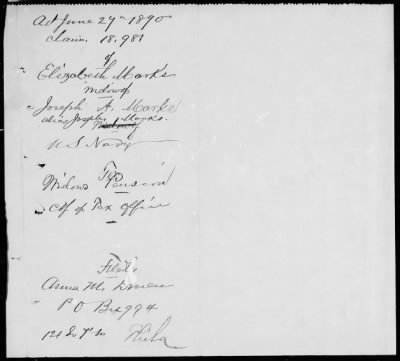 Act June 27th 1890
Claim 18,981
of
Elizabeth Marks
widow of
Joseph A. Marks
alias Joseph Marks.
U S Navy
For
Widows Pension
Ctf of Tax Office
Filed
Anna M.
P O Box 994
Phila